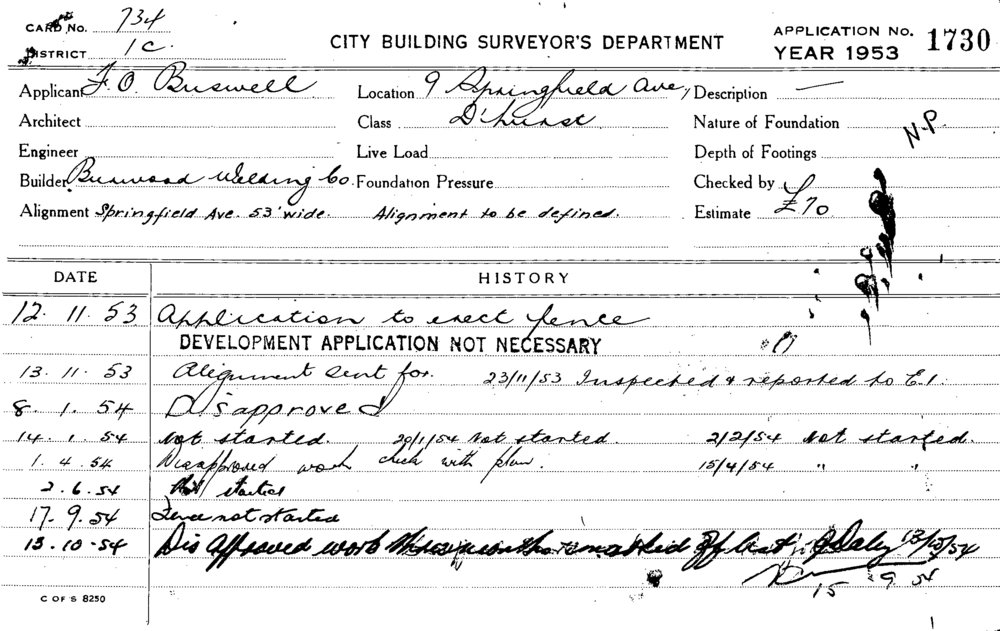 CARD No. 734
DISTRICT 1C.
CITY BUILDING SURVEYOR'S DEPARTMENT
APPLICATION No. 1730
YEAR 1953
Applicant F. O. Buswell Location 9 Springfield Ave, Description —
Architect Class D'hurst Nature of Foundation N.P.
Engineer Live Load Depth of Footings
Builder Burwood Welding Co. Foundation Pressure Checked by
Alignment Springfield Ave. 53' wide. Alignment to be defined. Estimate £70
DATE HISTORY
12. 11. 53 Application to erect fence
DEVELOPMENT APPLICATION NOT NECESSARY
13. 11. 53 Alignment sent for. 23/11/53 Inspected & reported to E.1.
8. 1. 54 Disapproved
14. 1. 54 Not started. 20/1/54 Not started. 2/2/54 Not started.
1. 4. 54 Disapproved work check with plan. 15/4/54 " "
2. 6. 54 Not started
17. 9. 54 Fence not started
13. 10. 54 Dis approved work Daly 13/10/54
15 9 54
C OF S 8250